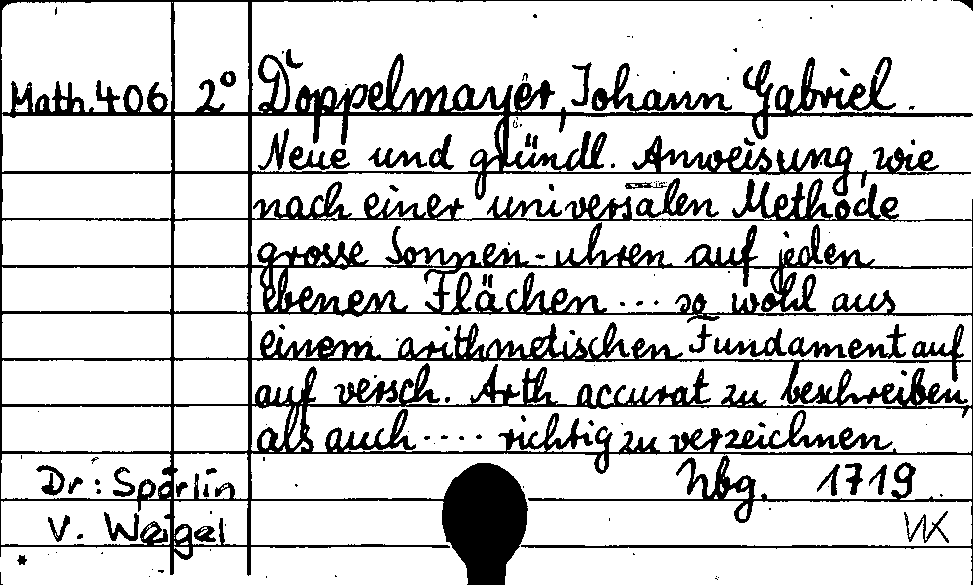 Math. 406 2° Doppelmayer, Johann Gabriel.
Neue und gründl. Anweisung, wie
nach einer universalen Methode
grosse Sonnen-uhren auf jeden
ebenen Flächen ... so wohl aus
einem arithmetischen Fundament auf
auf versch. Arth accurat zu beschreiben,
als auch .... richtig zu verzeichnen.
Dr: Spörlin Nbg. 1719
V. Weigel
*